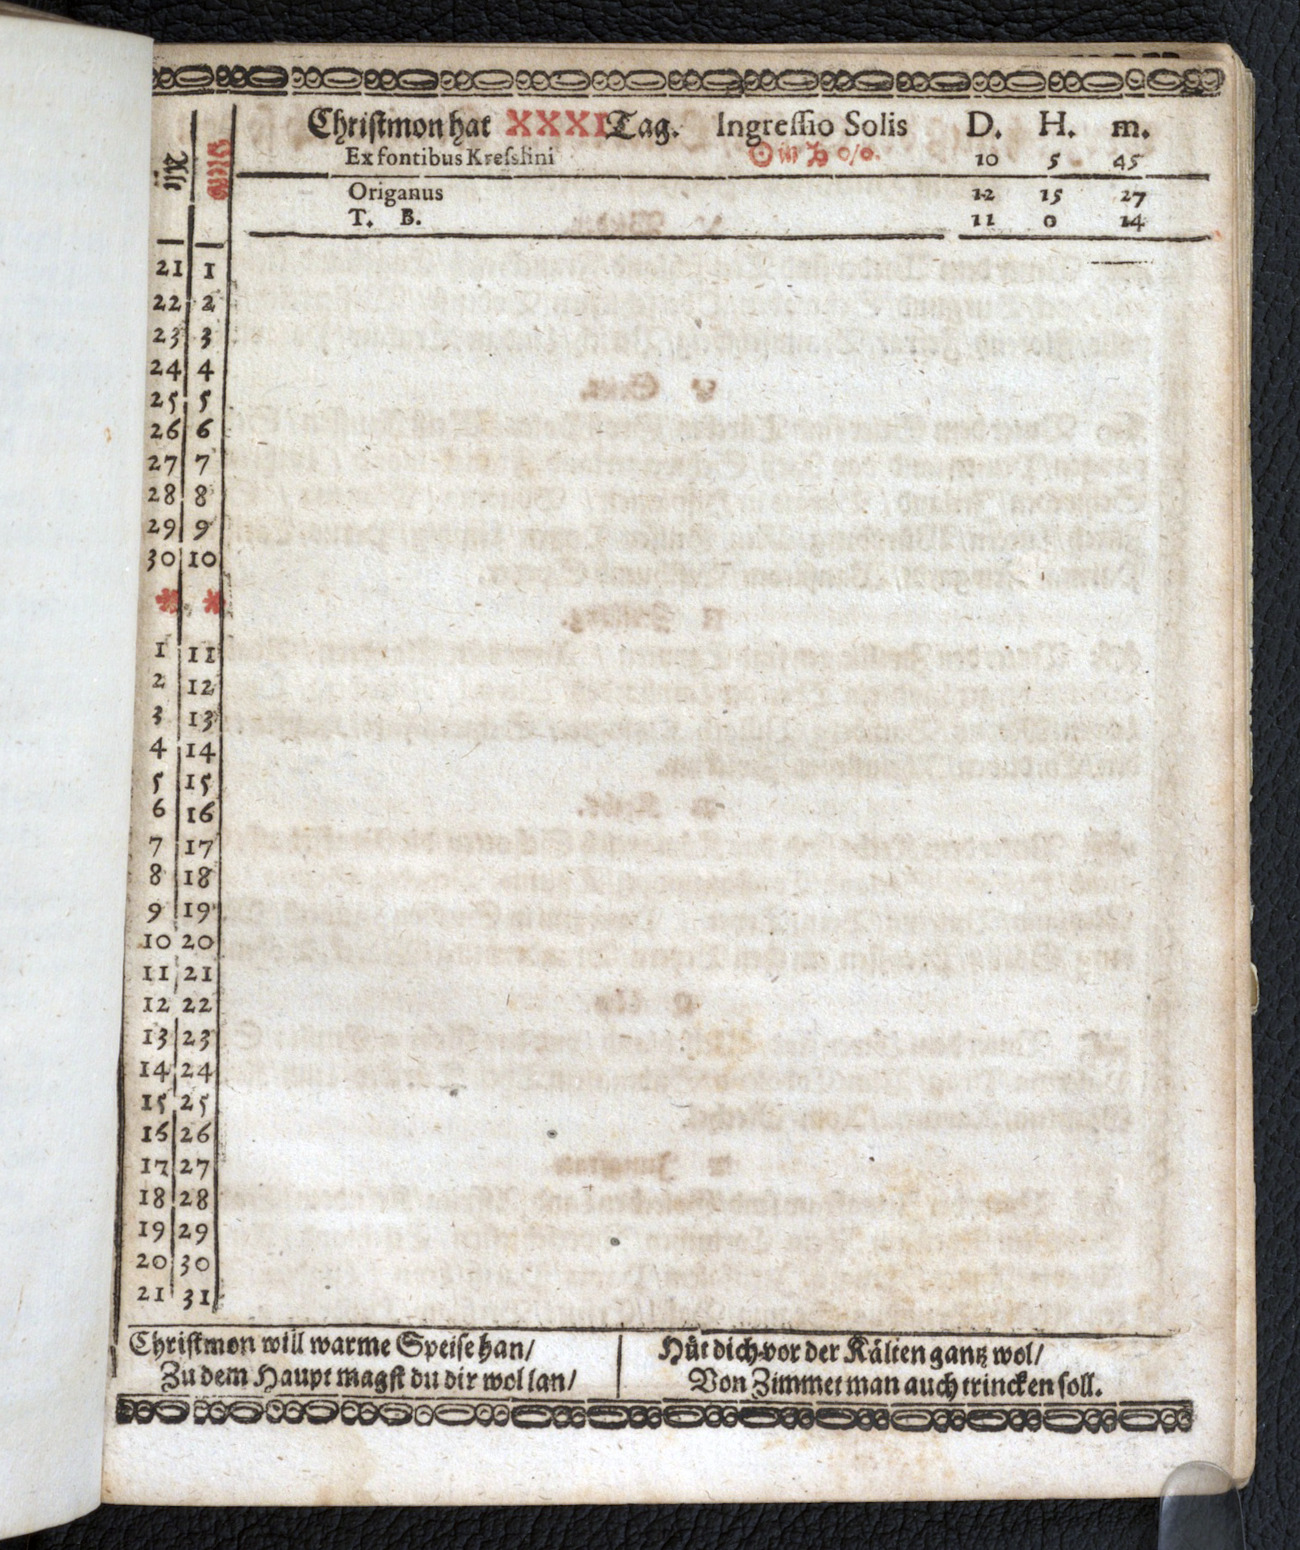 Christmon hat XXXI Tag. Ingressio Solis D. H. m.
Ex fontibus Kresslini ☉ in ♑ 0/0. 10 5 45
Origanus 12 15 27
T. B. 11 0 14
Alt
21 1
22 2
23 3
24 4
25 5
26 6
27 7
28 8
29 9
30 10
* *
1 11
2 12
3 13
4 14
5 15
6 16
7 17
8 18
9 19
10 20
11 21
12 22
13 23
14 24
15 25
16 26
17 27
18 28
19 29
20 30
21 31
Christmon will warme Speise han/
Zu dem Haupt magst du dir wol lan/
Hüt dich vor der Kälten gantz wol/
Von Zimmet man auch trincken soll.